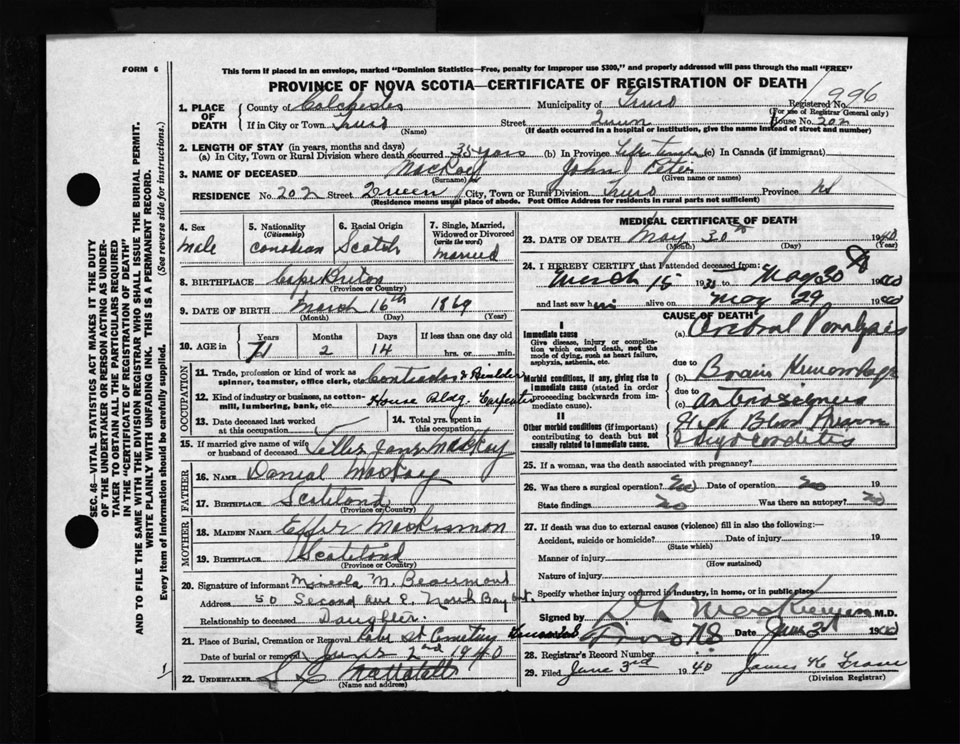 FORM 6
This form if placed in an envelope, marked "Dominion Statistics—Free, penalty for improper use $300," and properly addressed will pass through the mail "FREE"
PROVINCE OF NOVA SCOTIA—CERTIFICATE OF REGISTRATION OF DEATH
996
1. PLACE OF DEATH County of Colchester Municipality of Truro Registered No.
(For use of Registrar General only)
If in City or Town Truro Street Queen House No. 202
(Name) (If death occurred in a hospital or institution, give the name instead of street and number)
2. LENGTH OF STAY (in years, months and days)
(a) In City, Town or Rural Division where death occurred 35 years (b) In Province Life time (c) In Canada (if immigrant)
3. NAME OF DECEASED MacKay John Peter
(Surname) (Given name or names)
RESIDENCE No. 202 Street Queen City, Town or Rural Division Truro Province NS
(Residence means usual place of abode. Post Office Address for residents in rural parts not sufficient)
4. Sex male
5. Nationality (Citizenship) Canadian
6. Racial Origin Scotch
7. Single, Married, Widowed or Divorced (write the word) married
8. BIRTHPLACE Cape Breton
(Province or Country)
9. DATE OF BIRTH March 16th 1869
(Month) (Day) (Year)
10. AGE in Years 71 Months 2 Days 14 If less than one day old hrs. or min.
OCCUPATION
11. Trade, profession or kind of work as spinner, teamster, office clerk, etc. Contractor & Builder
12. Kind of industry or business, as cotton-mill, lumbering, bank, etc. House Bldg. Carpenter
13. Date deceased last worked at this occupation
14. Total yrs. spent in this occupation
15. If married give name of wife or husband of deceased Jane MacKay
FATHER
16. NAME Daniel MacKay
17. BIRTHPLACE Scotland
(Province or Country)
MOTHER
18. MAIDEN NAME MacKinnon
19. BIRTHPLACE Scotland
(Province or Country)
20. Signature of informant M. Beaumont
Address 50 Second Ave E. North Bay Ont.
Relationship to deceased Daughter
21. Place of Burial, Cremation or Removal Robie St Cemetery
Date of burial or removal June 2nd 1940
22. UNDERTAKER
(Name and address)
MEDICAL CERTIFICATE OF DEATH
23. DATE OF DEATH May 30th 1940
(Month) (Day) (Year)
24. I HEREBY CERTIFY that I attended deceased from:
March 15 19 to May 30 1940
and last saw him alive on May 29 1940
CAUSE OF DEATH
I
Immediate cause
Give disease, injury, or complication which caused death, not the mode of dying, such as heart failure, asphyxia, asthenia, etc.
(a) Cerebral Paralysis
due to
Morbid conditions, if any, giving rise to immediate cause (stated in order proceeding backwards from immediate cause).
(b) Brain Hemorrhage
due to
(c)
II
Other morbid conditions (if important) contributing to death but not causally related to immediate cause.
High Blood Pressure
& Myocarditis
25. If a woman, was the death associated with pregnancy?
26. Was there a surgical operation? No Date of operation No 19
State findings No Was there an autopsy? No
27. If death was due to external causes (violence) fill in also the following:—
Accident, suicide or homicide? Date of injury 19
(State which)
Manner of injury
(How sustained)
Nature of injury
Specify whether injury occurred in industry, in home, or in public place
Signed by M.D.
Truro N.S. Date June 1940
28. Registrar's Record Number
29. Filed June 3rd 1940 James K
(Division Registrar)
SEC. 46—VITAL STATISTICS ACT MAKES IT THE DUTY
OF THE UNDERTAKER OR PERSON ACTING AS UNDER-
TAKER TO OBTAIN ALL THE PARTICULARS REQUIRED
IN THE "CERTIFICATE OF REGISTRATION OF DEATH"
AND TO FILE THE SAME WITH THE DIVISION REGISTRAR WHO SHALL ISSUE THE BURIAL PERMIT.
WRITE PLAINLY WITH UNFADING INK. THIS IS A PERMANENT RECORD.
Every item of information should be carefully supplied. (See reverse side for instructions.)